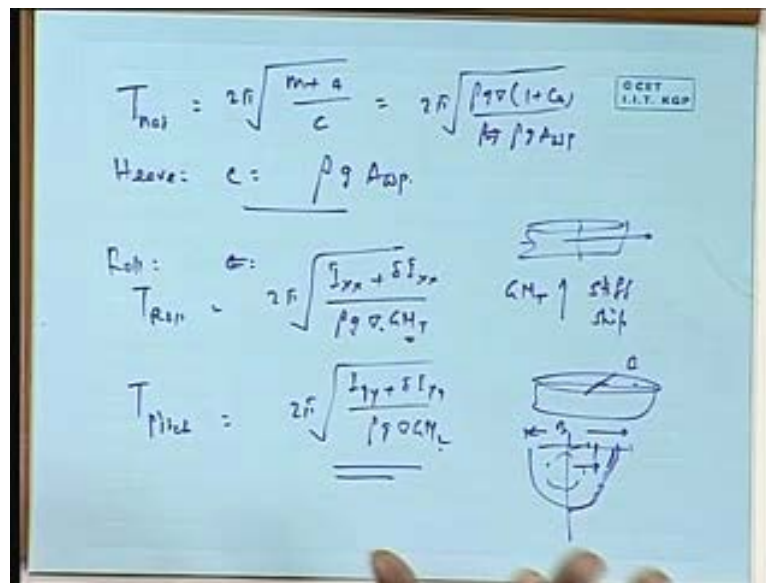 T_nat = 2π √((m + a) / c) = 2π √(ρg∇(1 + Ca) / ρg A_WP)
© CET
I.I.T. KGP
Heave: c = ρ g A_WP.
Roll:
T_Roll = 2π √((I_xx + δI_xx) / (ρg∇.GM_T))
GM_T ↑ stiff
ship
T_Pitch = 2π √((I_yy + δI_yy) / (ρg∇GM_L))
B